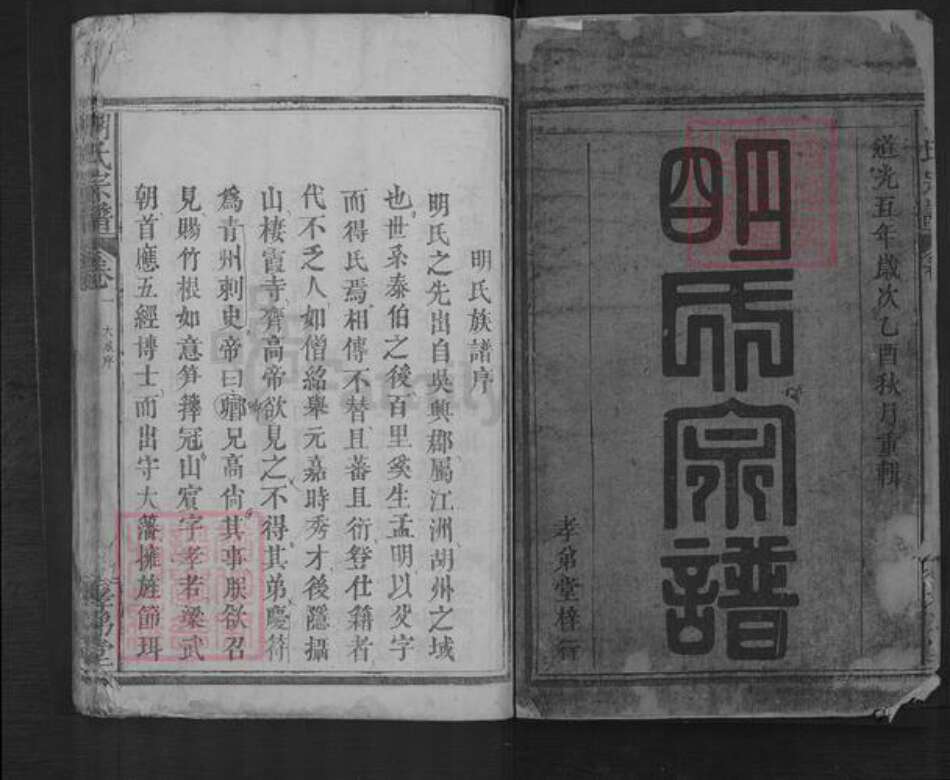 道光五年歲次乙酉秋月重輯
明氏宗譜
孝弟堂梓行
明氏族譜序
明氏之先出自吳興郡屬江洲胡州之域
也世系泰伯之後百里奚生孟明以父字
而得氏焉相傳不替且蕃且衍登仕籍者
代不乏人如僧紹舉元嘉時秀才後隱攝
山棲霞寺齊高帝欲見之不得其弟慶符
為青州刺史帝曰卿兄高尚其事朕欲召
見賜竹根如意笋籜冠山賓字孝若梁武
朝首應五經博士而出守大藩擁旌節珥
明氏宗譜
卷一
孝弟堂